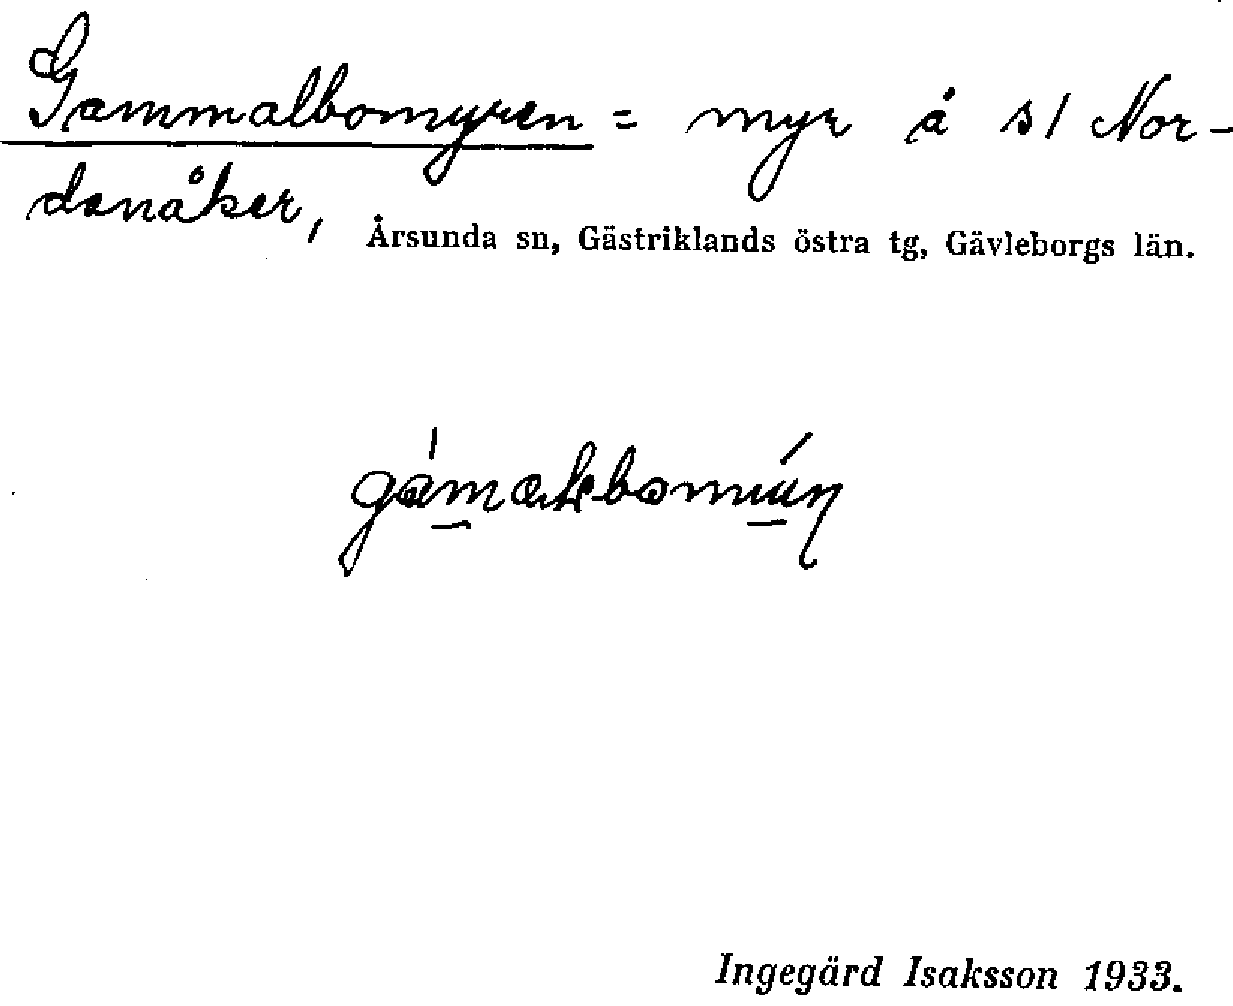 Gammalbomyren = myr å s/ Nor-
danåker,
Årsunda sn, Gästriklands östra tg, Gävleborgs län.
Ingegärd Isaksson 1933.